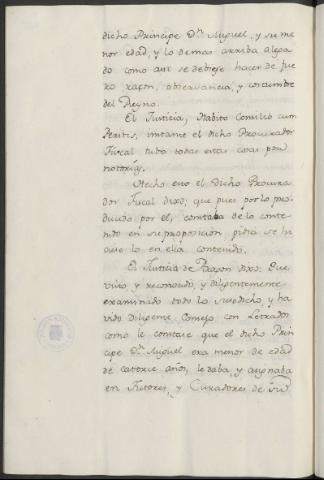 dicho Principe Dn Miguel, y su me
nor edad, y lo demas arriba alega
do como assi se debiese hacer de fue
ro razon, observancia, y costumbre
del Reyno.
El Justicia, Habito Consilio cum
Peritis, instante el dicho Procurador
Fiscal tubo todas estas cosas por
notorias.
Hecho esto el Dicho Procura
dor Fiscal dixo, que pues por lo pro
ducido por él, constaba de lo conte
nido en su proposicion, pidia se hi
ciese lo en ella contenido.
El Justicia de Aragon dixo: Que
visto, y reconocido, y diligentemente
examinado todo lo susodicho, y ha
vido diligente Consejo con Letrados
como le constase que el dicho Prin
cipe Dn Miguel era menor de edad
de catorce años, le daba, y asignaba
en Tutores, y Curadores de su